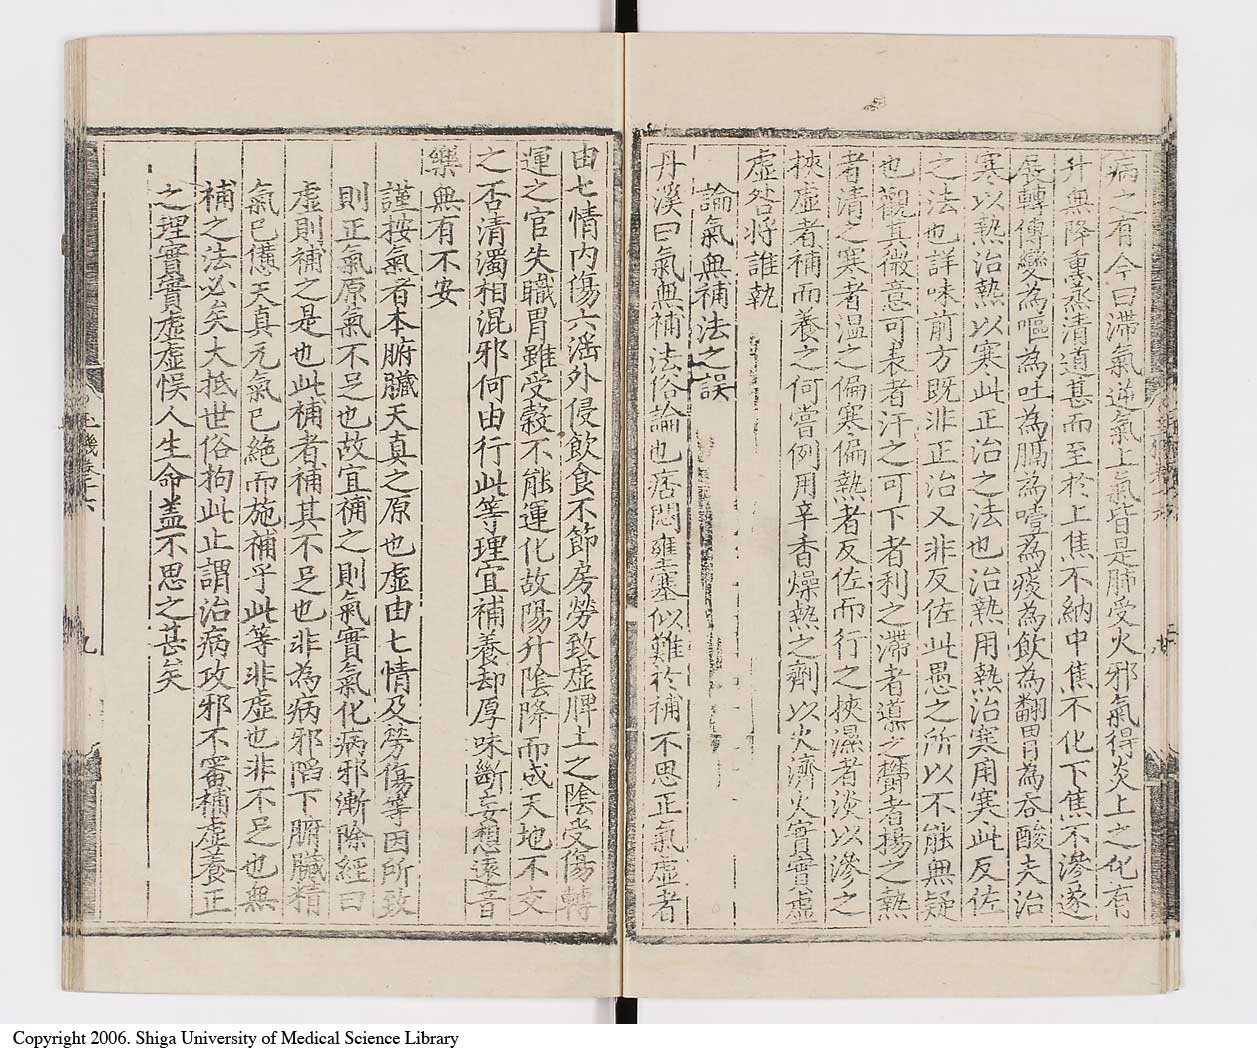 病之有今曰滯氣逆氣上氣皆是肺受火邪氣得炎上之化有
升無降熏蒸清道甚而至於上焦不納中焦不化下焦不滲遂
展轉傳變為嘔為吐為膈為噎為痰為飲為翻胃為吞酸夫治
寒以熱治熱以寒此正治之法也治熱用熱治寒用寒此反佐
之法也詳味前方既非正治又非反佐此愚之所以不能無疑
也觀其微意可表者汗之可下者利之滯者導之欝者揚之熱
者清之寒者溫之偏寒偏熱者反佐而行之挾濕者淡以滲之
挾虛者補而養之何嘗例用辛香燥熱之劑以火濟火實實虛
虛咎將誰執
論氣無補法之誤
丹溪曰氣無補法俗論也痞悶壅塞似難於補不思正氣虛者
由七情內傷六淫外侵飲食不節房勞致虛脾土之陰受傷轉
運之官失職胃雖受穀不能運化故陽升陰降而成天地不交
之否清濁相混邪何由行此等理宜補養却厚味斷妄想遠音
樂無有不安
謹按氣者本腑臟天真之原也虛由七情及勞傷等因所致
則正氣原氣不足也故宜補之則氣實氣化病邪漸除經曰
虛則補之是也此補者補其不足也非為病邪陷下腑臟精
氣已憊天真元氣已絕而施補乎此等非虛也非不足也無
補之法必矣大抵世俗拘此止謂治病攻邪不審補虛養正
之理實實虛虛悞人生命盖不思之甚矣
九
Copyright 2006. Shiga University of Medical Science Library